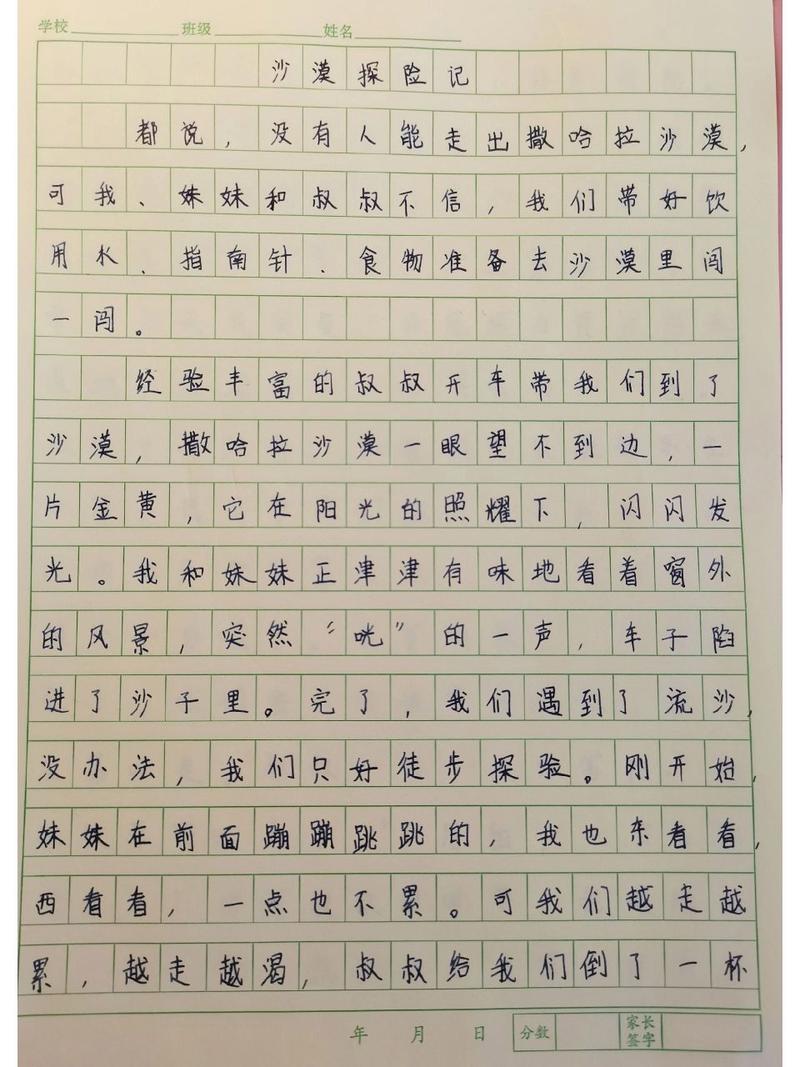 学校 班级 姓名
沙漠探险记
都说，没有人能走出撒哈拉沙漠，
可我、妹妹和叔叔不信，我们带好饮
用水、指南针、食物准备去沙漠里闯
一闯。
经验丰富的叔叔开车带我们到了
沙漠，撒哈拉沙漠一眼望不到边，一
片金黄，它在阳光的照耀下，闪闪发
光。我和妹妹正津津有味地看着窗外
的风景，突然“咣”的一声，车子陷
进了沙子里。完了，我们遇到了流沙，
没办法，我们只好徒步探验。刚开始，
妹妹在前面蹦蹦跳跳的，我也东看看，
西看看，一点也不累。可我们越走越
累，越走越渴，叔叔给我们倒了一杯
年 月 日 分数 家长签字